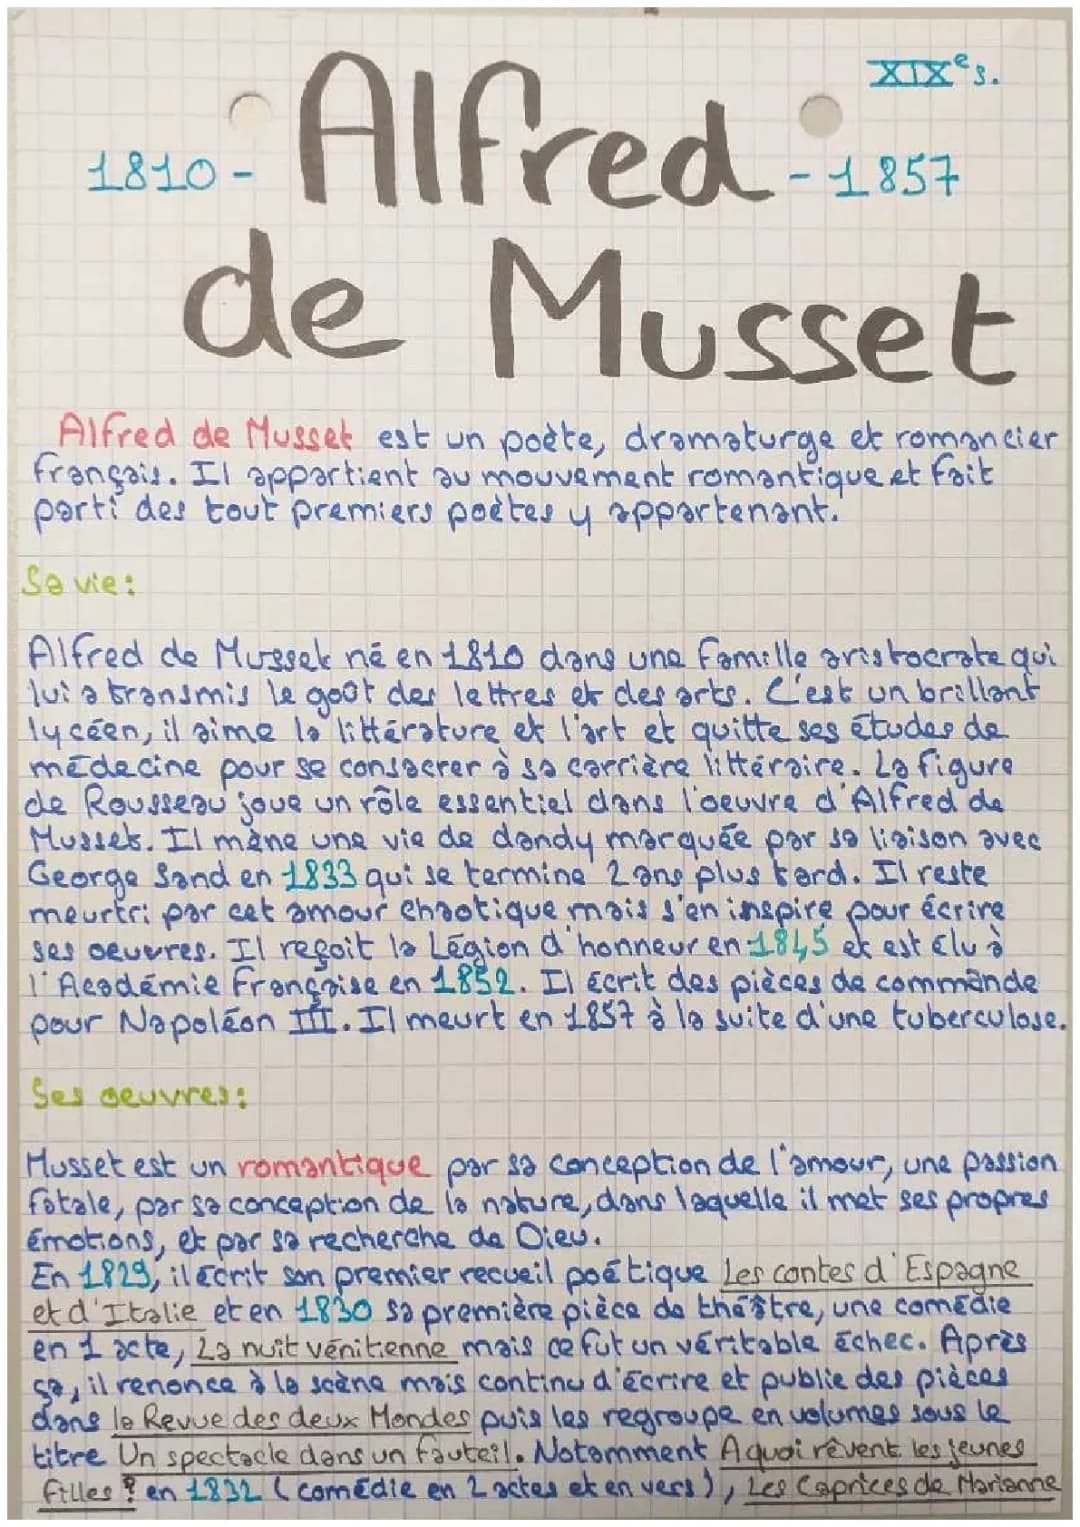 XIXe s.
1810 - Alfred - 1857
de Musset
Alfred de Musset est un poète, dramaturge et romancier
français. Il appartient au mouvement romantique et fait
parti des tout premiers poètes y appartenant.
Sa vie :
Alfred de Musset né en 1810 dans une famille aristocrate qui
lui a transmis le goût des lettres et des arts. C'est un brillant
lycéen, il aime la littérature et l'art et quitte ses études de
médecine pour se consacrer à sa carrière littéraire. La figure
de Rousseau joue un rôle essentiel dans l'oeuvre d'Alfred de
Musset. Il mène une vie de dandy marquée par sa liaison avec
George Sand en 1833 qui se termine 2 ans plus tard. Il reste
meurtri par cet amour chaotique mais s'en inspire pour écrire
ses oeuvres. Il reçoit la Légion d'honneur en 1845 et est élu à
l'Académie Française en 1852. Il écrit des pièces de commande
pour Napoléon III. Il meurt en 1857 à la suite d'une tuberculose.
Ses oeuvres :
Musset est un romantique par sa conception de l'amour, une passion
fatale, par sa conception de la nature, dans laquelle il met ses propres
émotions, et par sa recherche de Dieu.
En 1829, il écrit son premier recueil poétique Les contes d'Espagne
et d'Italie et en 1830 sa première pièce de théâtre, une comédie
en 1 acte, La nuit vénitienne mais ce fut un véritable échec. Après
ça, il renonce à la scène mais continu d'écrire et publie des pièces
dans la Revue des deux Mondes puis les regroupe en volumes sous le
titre Un spectacle dans un fauteil. Notamment A quoi rêvent les jeunes
filles ? en 1832 (comédie en 2 actes et en vers), Les Caprices de Marianne